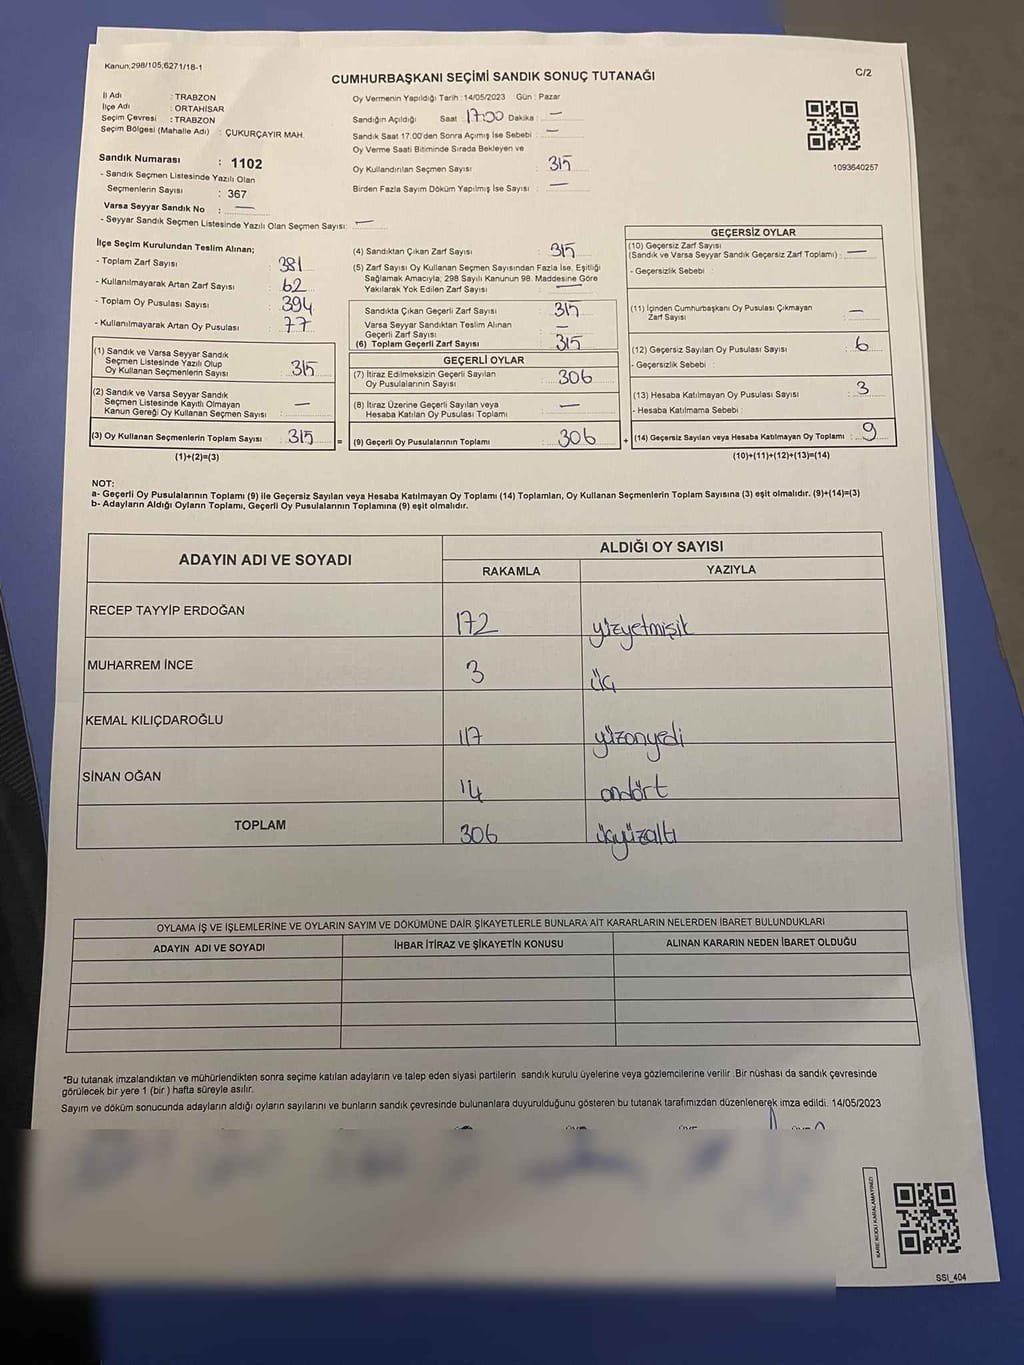 Kanun,298/105,6271/18-1
C/2
CUMHURBAŞKANI SEÇİMİ SANDIK SONUÇ TUTANAĞI
İl Adı : TRABZON
İlçe Adı : ORTAHİSAR
Seçim Çevresi : TRABZON
Seçim Bölgesi (Mahalle Adı) : ÇUKURÇAYIR MAH.
Sandık Numarası : 1102
- Sandık Seçmen Listesinde Yazılı Olan
Seçmenlerin Sayısı : 367
Varsa Seyyar Sandık No : —
- Seyyar Sandık Seçmen Listesinde Yazılı Olan Seçmen Sayısı: —
Oy Vermenin Yapıldığı Tarih : 14/05/2023 Gün : Pazar
Sandığın Açıldığı Saat : 17:00 Dakika : —
Sandık Saat 17:00'den Sonra Açımış İse Sebebi : —
Oy Verme Saati Bitiminde Sırada Bekleyen ve
Oy Kullandırılan Seçmen Sayısı : 315
Birden Fazla Sayım Döküm Yapılmış İse Sayısı : —
1093640257
İlçe Seçim Kurulundan Teslim Alınan;
- Toplam Zarf Sayısı : 381
- Kullanılmayarak Artan Zarf Sayısı : 62
- Toplam Oy Pusulası Sayısı : 394
- Kullanılmayarak Artan Oy Pusulası : 77
(1) Sandık ve Varsa Seyyar Sandık
Seçmen Listesinde Yazılı Olup
Oy Kullanan Seçmenlerin Sayısı : 315
(2) Sandık ve Varsa Seyyar Sandık
Seçmen Listesinde Kayıtlı Olmayan
Kanun Gereği Oy Kullanan Seçmen Sayısı : —
(3) Oy Kullanan Seçmenlerin Toplam Sayısı : 315 =
(1)+(2)=(3)
(4) Sandıktan Çıkan Zarf Sayısı : 315
(5) Zarf Sayısı Oy Kullanan Seçmen Sayısından Fazla İse, Eşitliği
Sağlamak Amacıyla, 298 Sayılı Kanunun 98. Maddesine Göre
Yakılarak Yok Edilen Zarf Sayısı : —
Sandıkta Çıkan Geçerli Zarf Sayısı : 315
Varsa Seyyar Sandıktan Teslim Alınan
Geçerli Zarf Sayısı : —
(6) Toplam Geçerli Zarf Sayısı : 315
GEÇERLİ OYLAR
(7) İtiraz Edilmeksizin Geçerli Sayılan
Oy Pusulalarının Sayısı : 306
(8) İtiraz Üzerine Geçerli Sayılan veya
Hesaba Katılan Oy Pusulası Toplamı : —
(9) Geçerli Oy Pusulalarının Toplamı : 306 +
GEÇERSİZ OYLAR
(10) Geçersiz Zarf Sayısı
(Sandık ve Varsa Seyyar Sandık Geçersiz Zarf Toplamı) : —
- Geçersizlik Sebebi :
(11) İçinden Cumhurbaşkanı Oy Pusulası Çıkmayan
Zarf Sayısı : —
(12) Geçersiz Sayılan Oy Pusulası Sayısı : 6
- Geçersizlik Sebebi :
(13) Hesaba Katılmayan Oy Pusulası Sayısı : 3
- Hesaba Katılmama Sebebi :
(14) Geçersiz Sayılan veya Hesaba Katılmayan Oy Toplamı : 9
(10)+(11)+(12)+(13)=(14)
NOT:
a- Geçerli Oy Pusulalarının Toplamı (9) ile Geçersiz Sayılan veya Hesaba Katılmayan Oy Toplamı (14) Toplamları, Oy Kullanan Seçmenlerin Toplam Sayısına (3) eşit olmalıdır. (9)+(14)=(3)
b- Adayların Aldığı Oyların Toplamı, Geçerli Oy Pusulalarının Toplamına (9) eşit olmalıdır.
ADAYIN ADI VE SOYADI
ALDIĞI OY SAYISI
RAKAMLA YAZIYLA
RECEP TAYYİP ERDOĞAN 172 yüzyetmişik
MUHARREM İNCE 3 üç
KEMAL KILIÇDAROĞLU 117 yüzonyedi
SİNAN OĞAN 14 ondört
TOPLAM 306 üçyüzaltı
OYLAMA İŞ VE İŞLEMLERİNE VE OYLARIN SAYIM VE DÖKÜMÜNE DAİR ŞİKAYETLERLE BUNLARA AİT KARARLARIN NELERDEN İBARET BULUNDUKLARI
ADAYIN ADI VE SOYADI İHBAR İTİRAZ VE ŞİKAYETİN KONUSU ALINAN KARARIN NEDEN İBARET OLDUĞU
*Bu tutanak imzalandıktan ve mühürlendikten sonra seçime katılan adayların ve talep eden siyasi partilerin sandık kurulu üyelerine veya gözlemcilerine verilir .Bir nüshası da sandık çevresinde
görülecek bir yere 1 (bir ) hafta süreyle asılır.
Sayım ve döküm sonucunda adayların aldığı oyların sayılarını ve bunların sandık çevresinde bulunanlara duyurulduğunu gösteren bu tutanak tarafımızdan düzenlenerek imza edildi. 14/05/2023
KARE KODU KARALAMAYINIZ!
SSI_404